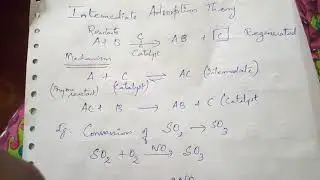 Intermediate Adsorption Theory
Reactants
A + B → AB + C Regenerated
C
Catalyst
Mechanism
A + C ⇌ AC (Intermediate)
reactant) (Catalyst)
AC + B → AB + C (Catalyst
Eg: Conversion of SO2 → SO3
SO2 + O2 NO→ SO3